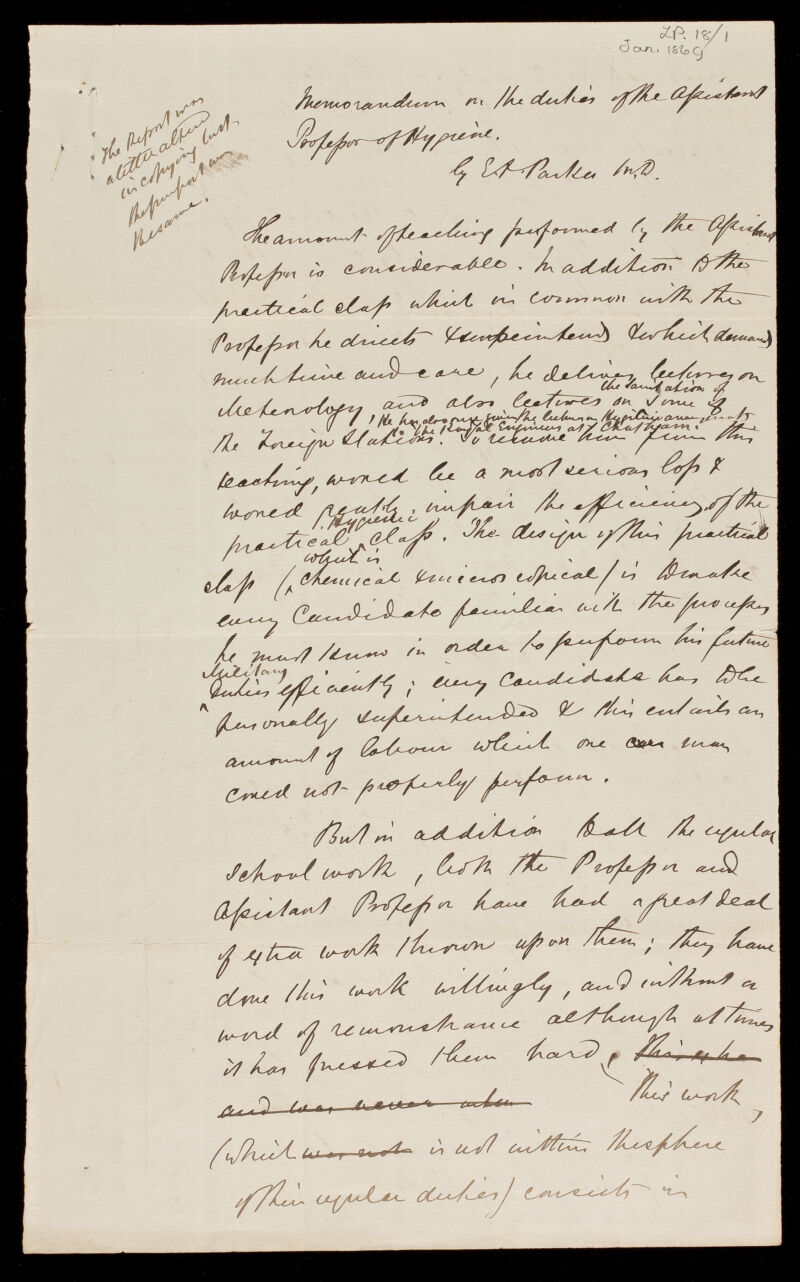 LP. 18/1
Jan. 1869
The Report was
a little altered
in copying but
the purport was
the same.
Memorandum on the duties of the Assistant
Professor of Hygiene.
by E A Parkes M.D.
The amount of teaching performed by the Assistant
Professor is considerable. In addition to the
practical class which in common with the
Professor he directs & superintends & which demands
much time and care, he delivers lectures on
Meteorology and also lectures on the Sanitation of some of
the Foreign Stations. He has also once given the lectures on Hygienic arrangements
to the Royal Engineers at Chatham. To remove him from this
teaching, would be a most serious loss &
would greatly impair the efficiency of the
practical Hygienic class. The design of this practical
class (which is chemical & microscopical) is to make
every Candidate familiar with the processes
he must know in order to perform his future
Military duties efficiently; every candidate has to be
personally superintended & this entails an
amount of labour which one man
could not properly perform.
But in addition to all the regular
school work, both the Professor and
Assistant Professor have had a great deal
of extra work thrown upon them; they have
done this work willingly, and without a
word of remonstrance although at times
it has pressed them hard.
and was never when This work,
(which was not is not within the sphere
of their regular duties) consists in